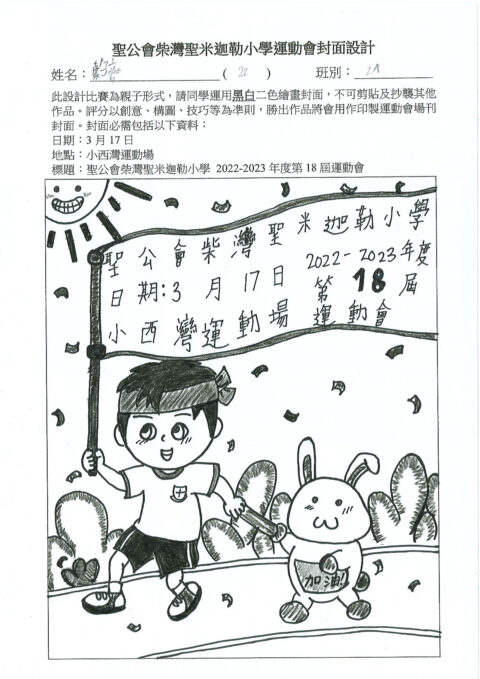 聖公會柴灣聖米迦勒小學運動會封面設計
姓名： ( 28 ) 班別：
此設計比賽為親子形式，請同學運用黑白二色繪畫封面，不可剪貼及抄襲其他
作品。評分以創意、構圖、技巧等為準則，勝出作品將會用作印製運動會場刊
封面。封面必需包括以下資料：
日期：3 月 17 日
地點：小西灣運動場
標題：聖公會柴灣聖米迦勒小學 2022-2023 年度第 18 屆運動會
聖公會柴灣聖米迦勒小學
2022-2023年度
日期:3 月 17 日
第 18 屆
小西灣運動場
運動會
加油!